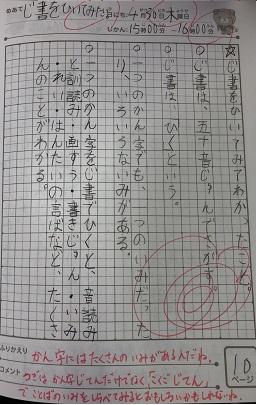 めあて じ書をひいてみた
4月30日木曜日
じかん:15時00分-16時00分
☆じ書をひいてみてわかったこと。
○じ書は、五十音じゅんでさがす。
○じ書は、ひくという。
○一つのかん字でも、一つのいみだった
り、いろいろないみがある。
○一つのかん字をじ書でひくと、音読み
と訓読み・画すう・書きじゅん・いみ
・れい・はんたいの言ばなど、たくさ
んのことがわかる。
ふりかえり
コメント
かん字にはたくさんのいみがあるんだね。
つぎは かんじてんだけでなく、「こくごじてん」
で ことばのいみをしらべてみると おもしろいかもしれないね。
10
ページ